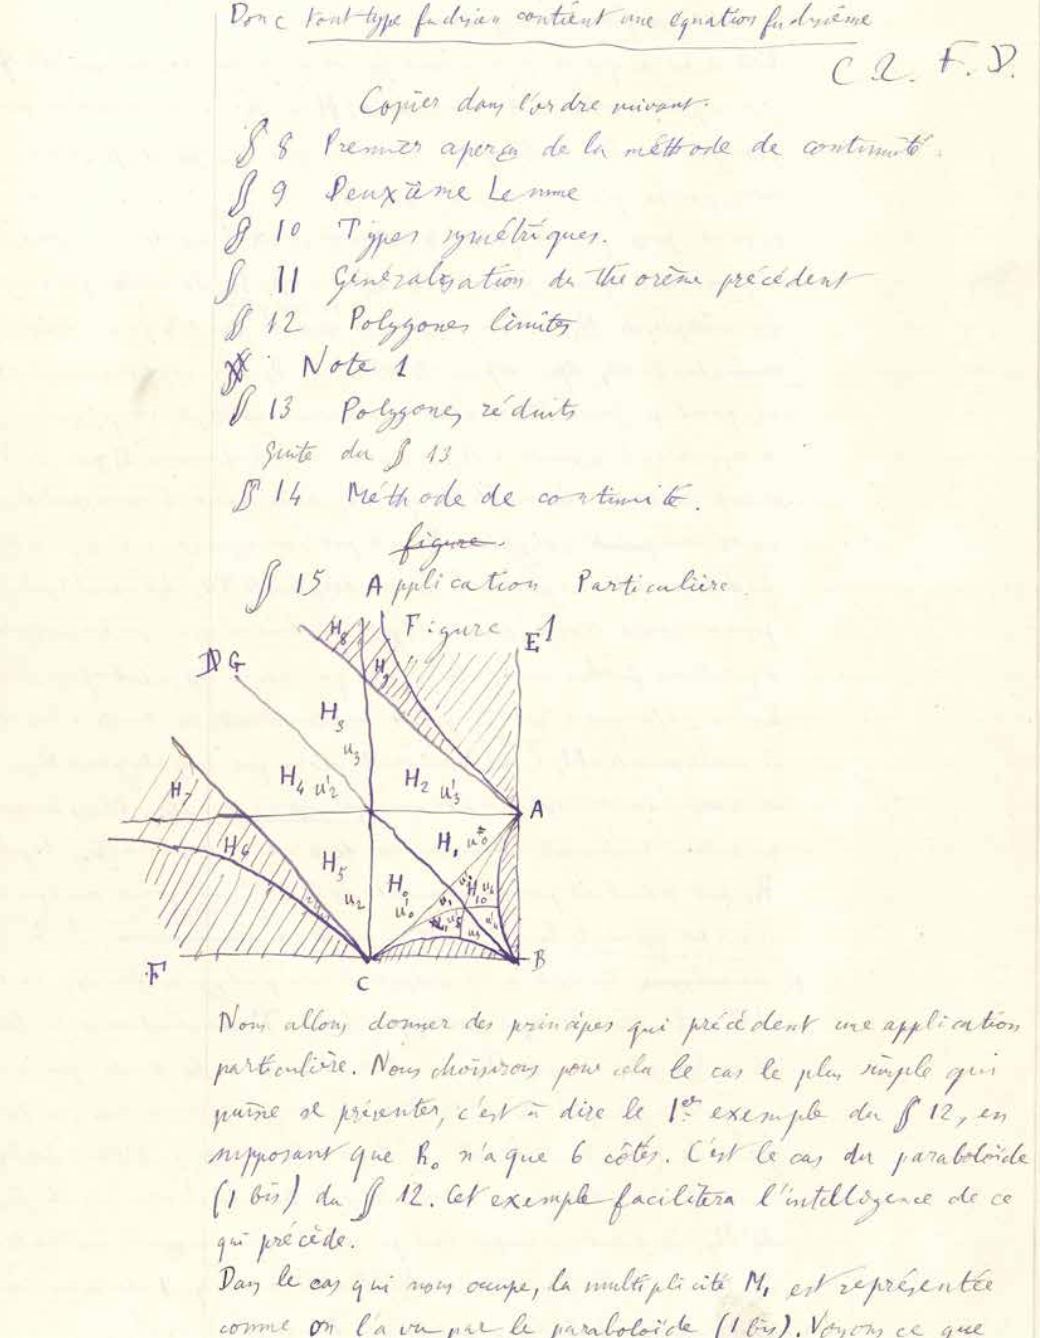 Donc tout type fuchsien contient une équation fuchsienne
C. Q. F. D.
Copier dans l'ordre suivant.
§ 8 Premier aperçu de la méthode de continuité.
§ 9 Deuxième Lemme
§ 10 Types symétriques.
§ 11 Généralisation du théorème précédent
§ 12 Polygones limites
Note 1
§ 13 Polygones réduits
Suite du § 13
§ 14 Méthode de continuité.
figure.
§ 15 Application Particulière.
Figure 1
E
H8
H9
D G
H3
u3
H4 u'2
H2 u'3
A
H7
H6
H5
u2
H1
H0
u'0
H10
F
C
B
Nous allons donner des principes qui précèdent une application
particulière. Nous choisirons pour cela le cas le plus simple qui
puisse se présenter, c'est à dire le 1er exemple du § 12, en
supposant que R0 n'a que 6 côtés. C'est le cas du paraboloïde
(1 bis) du § 12. Cet exemple facilitera l'intelligence de ce
qui précède.
Dans le cas qui nous occupe, la multiplicité M1 est représentée
comme on l'a vu par le paraboloïde (1 bis). Voyons ce que